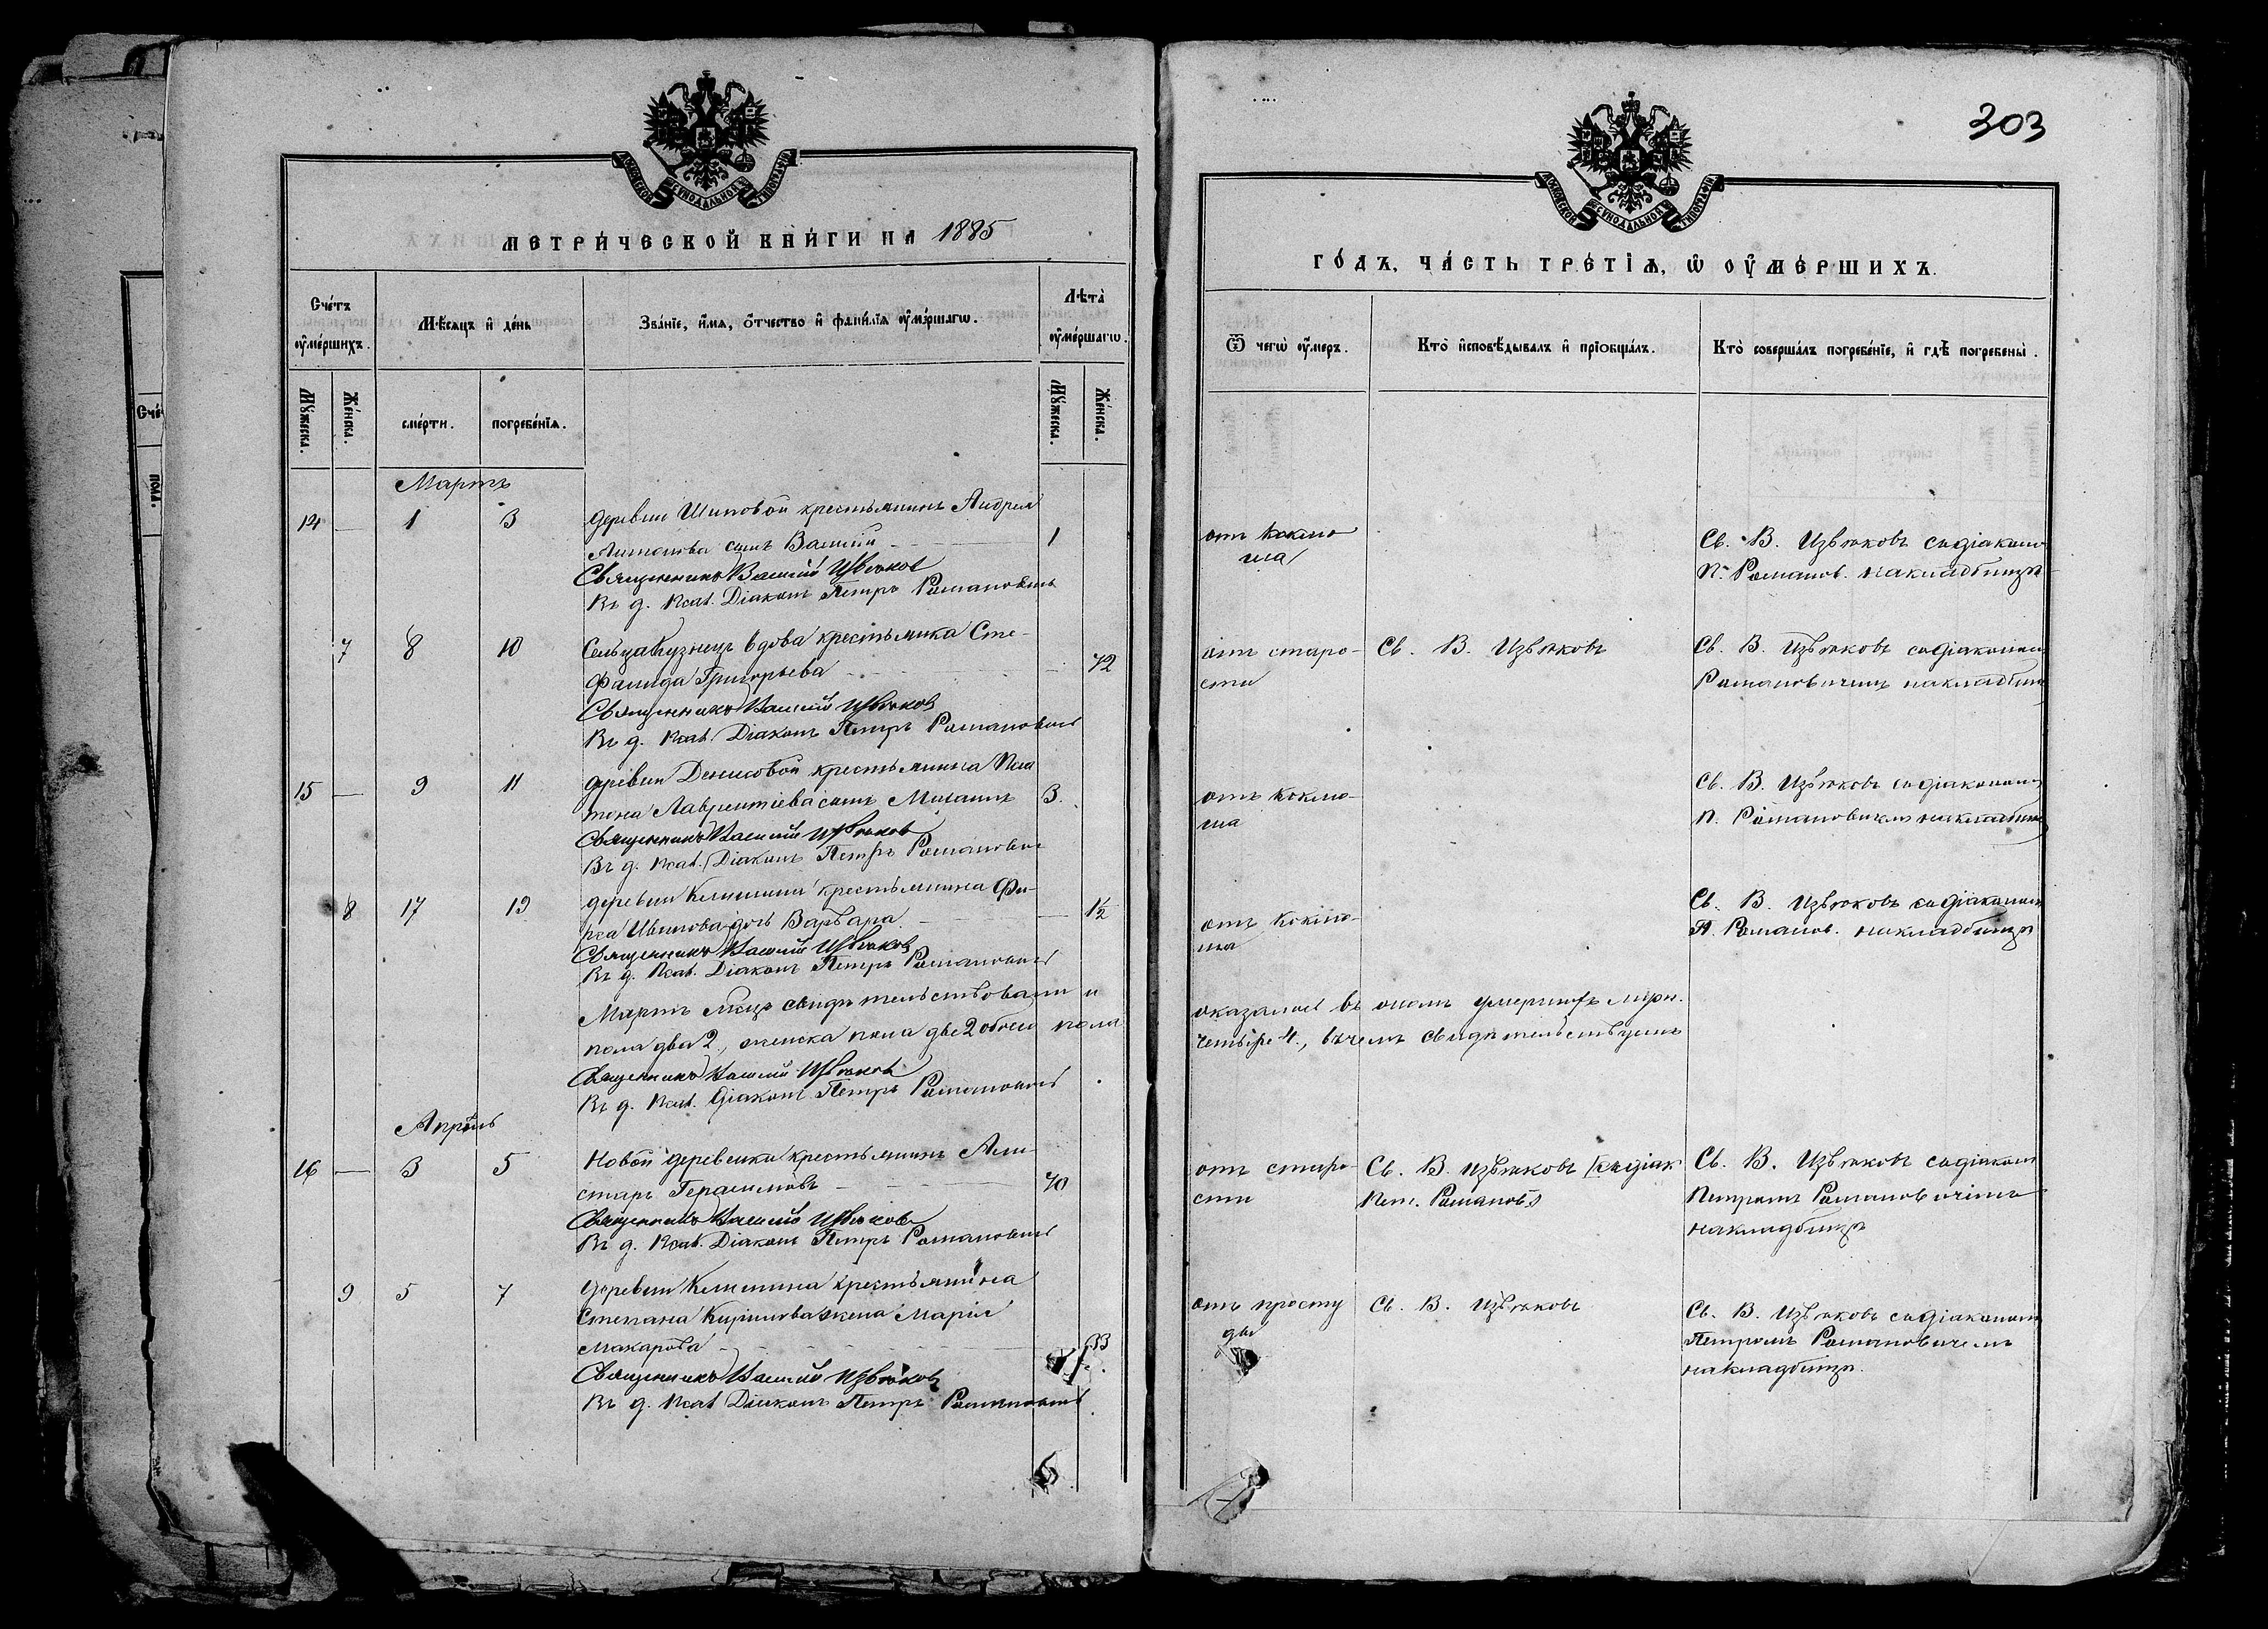 303
МОСКОВСКОЙ СѴНОДАЛЬНОЙ ТИПОГРАФІИ
МЕТРИЧЕСКОЙ КНИГИ НА 1885
Счетъ умершихъ.
Мѣсяцъ и день
Званіе, имя, отчество и фамилія умершаго.
Лѣта умершаго.
Мужеска.
Женска.
смерти.
погребенія.
Мужеска.
Женска.
Мартъ
14 — 1 3 деревни Шиповой крестьянинъ Андрея
Антонова сынъ Василій 1
Священникъ Василій Извѣковъ
Въ д. Псал. Діаконъ Петръ Романовичъ
7 8 10 Сельца Кузнецъ вдова крестьянка Сте-
фанида Григорьева — 72
Священникъ Василій Извѣковъ
Въ д. Псал. Діаконъ Петръ Романовичъ
15 — 9 11 деревни Денисовой крестьянина Пла
тона Лаврентіева сынъ Михаилъ 3.
Священникъ Василій Извѣковъ
Въ д. Псал. Діаконъ Петръ Романовичъ
8 17 19 деревни крестьянина Фи-
Иванова дочь Варвара — 1½
Священникъ Василій Извѣковъ
Въ д. Псал. Діаконъ Петръ Романовичъ
Мартъ мѣсяцъ свидѣтельствовали и
пола два 2, женска пола две 2 обоего пола
Священникъ Василій Извѣковъ
Въ д. Псал. Діаконъ Петръ Романовичъ
Апрѣль
16 — 3 5 Новой деревенки крестьянинъ Али-
старъ Герасимовъ 70
Священникъ Василій Извѣковъ
Въ д. Псал. Діаконъ Петръ Романовичъ
9 5 7 деревни крестьянина
Степана Кирилова жена Марія
Макарова 33
Священникъ Василій Извѣковъ
Въ д. Псал Діаконъ Петръ Романовичъ
МОСКОВСКОЙ СѴНОДАЛЬНОЙ ТИПОГРАФІИ
ГОДЪ, ЧАСТЬ ТРЕТІЯ, Ѡ УМЕРШИХЪ.
Ѿ чего умеръ.
Кто исповѣдывалъ и пріобщалъ.
Кто совершалъ погребеніе, и гдѣ погребены.
отъ коклю
ша
Св. В. Извѣковъ съ діаконо
П. Романов. на кладбищѣ
отъ старо-
сти
Св. В. Извѣковъ
Св. В. Извѣковъ съ діакономъ
Романовичемъ на кладбищѣ
отъ коклю-
ша
Св. В. Извѣковъ съ діакономъ
П. Романовичемъ на кладбищѣ
отъ коклю-
ша
Св. В. Извѣковъ съ діакономъ
П. Романов. на кладбищѣ
оказалось въ ономъ умершихъ муж.
четыре 4., въ чемъ свидѣтельствуемъ
отъ старо-
сти
Св. В. Извѣковъ съ діак
Пет. Романов.
Св. В. Извѣковъ съ діаконом
Петромъ Романовичемъ
на кладбищѣ
отъ просту
ды
Св. В. Извѣковъ
Св. В. Извѣковъ съ діакономъ
Петромъ Романовичемъ
на кладбищѣ.